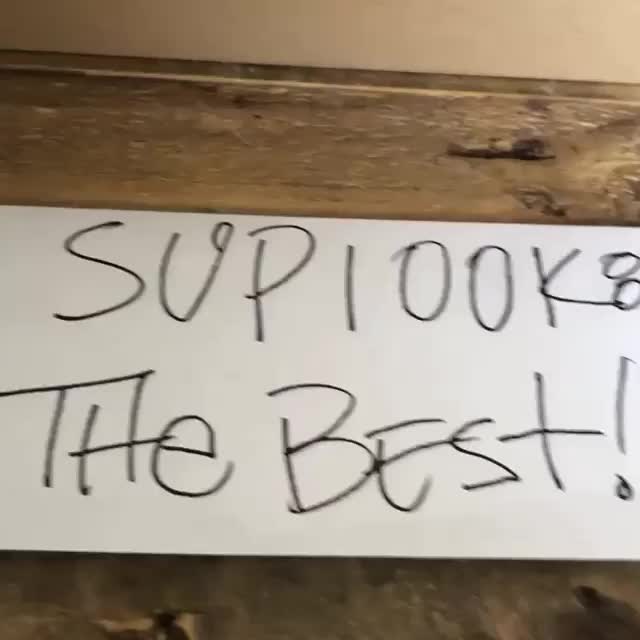 SUP100K8
THe BEst!